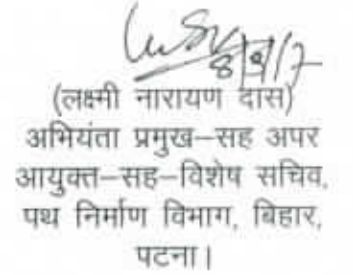 8/9/17
(लक्ष्मी नारायण दास)
अभियंता प्रमुख–सह अपर
आयुक्त–सह–विशेष सचिव,
पथ निर्माण विभाग, बिहार,
पटना।